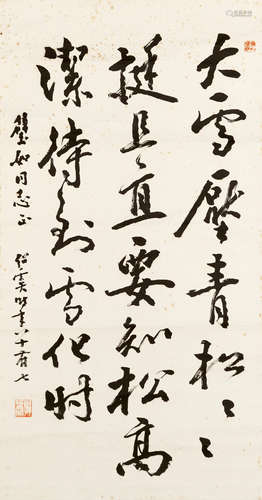 大雪壓青松〻〻
挺且直要知松高
潔待到雪化时
璧如同志正
时年八十有七